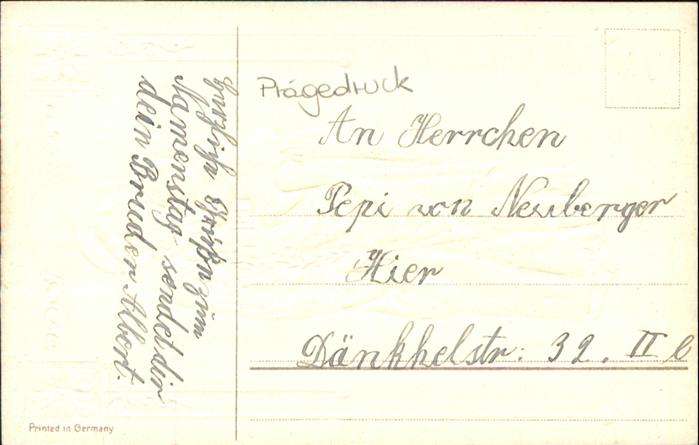 Herzliche Grüße zum
Namenstag sendet dir
dein Bruder Albert.
Prägedruck
An Herrchen
Pepi von Neuberger
Hier
Dänkhelstr: 32. II l
Printed in Germany